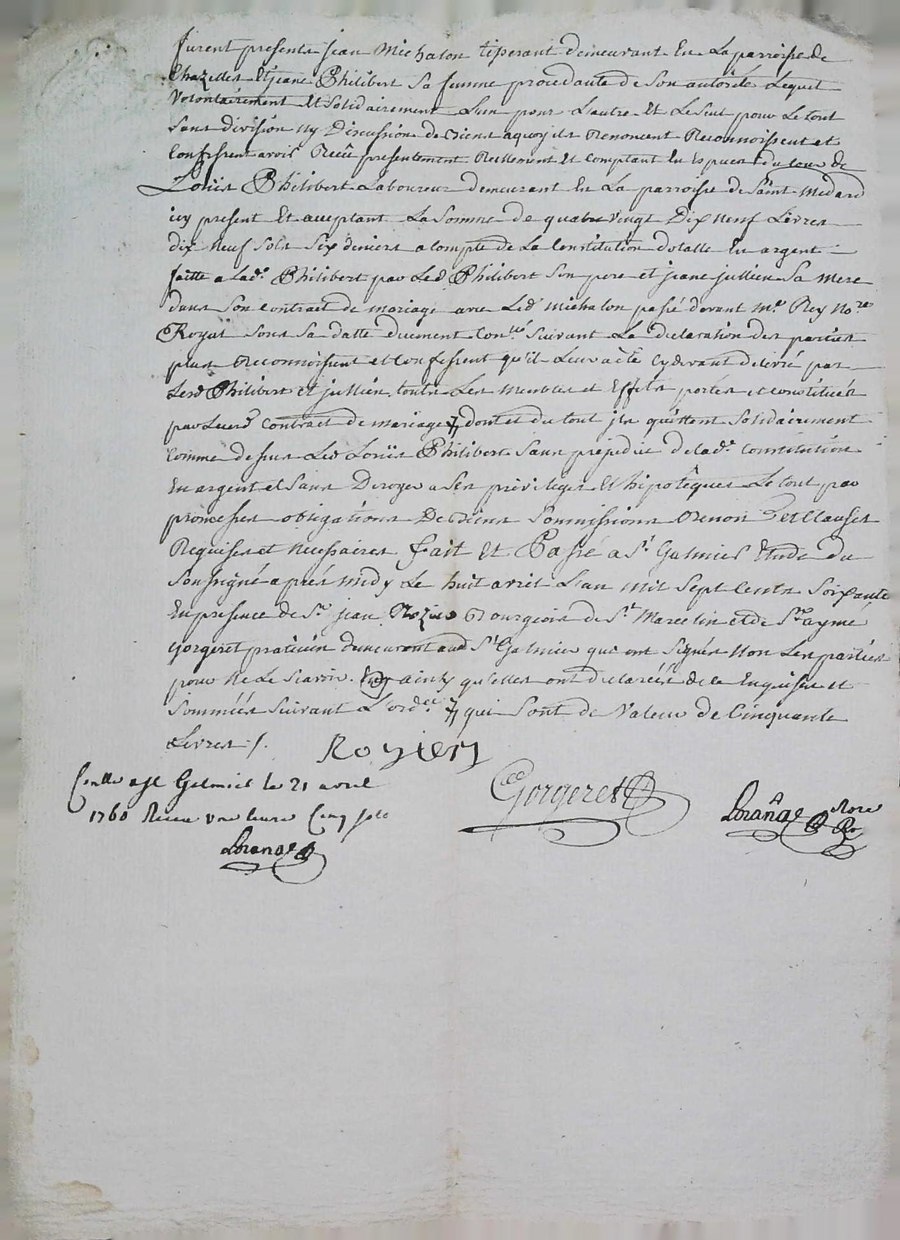 furent presents jean Michalon tisserant demeurant En La parroisse de
Chazelles Et jeane Philibert Sa femme procedante de Son autorité Lequel
Volontairement Et Solidairement L'un pour L'autre Et Le Seul pour Le tout
Sans division ny Discussion de Biens aquoy ils Renoncent Reconnoissent et
Confessent avoir Reçû presentement Reellement Et Comptant En Especes du cours de
Loüis Philibert Laboureur demeurant En La parroisse de Saint Medard
icy present Et acceptant La Somme de quatre vingt Dix neuf Livres
dix neuf Sols Six deniers acompte de La Constitution dotalle En argent
faitte a Lad.e Philibert par Led. Philibert Son pere et jeane jullien Sa Mere
dans Son Contrat de mariage avec Led. Michalon passé devant M.e Rey No.re
Royal Sous Sa datte duement Con.llé Suivant La declaration des parties
plus Reconnoissent et Confessent qu'il Leur a été Cydevant delivré par
Lesd. Philibert et jullien touts Les Meubles et Effets portés et constitués
par Leurd. Contract de mariage dont et du tout ils quittent Solidairement
Comme dessus Led. Loüis Philibert Sans prejudice de lad.e Constitution
En argent et Sans Deroger a Ses privileges Et hipotêques Le tout par
promesses obligations De Biens Soumissions Renon.s et Clauses
Requises et necessaires fait Et Passé a S.t Galmier Etude du
Soussigné après midy Le huit avril L'an mil Sept Cents Soixante
En presence de S.r jean Bourgeois de S.t Marcelin et de S.r aymé
Gorgeret praticien demeurant aud. S.t Galmier qui ont Signés Non Les parties
pour Ne Le Scavoir ainsy qu'elles ont declarées de ce Enquises et
Sommées Suivant L'ord.ce qui Sont de Valeur de Cinquante
Livres /.
Royiery
Gorgeret
Lorange Nore
Con.llé a St Galmier le 21 avril
1760 Receu une livre Cinq sols
Lorange